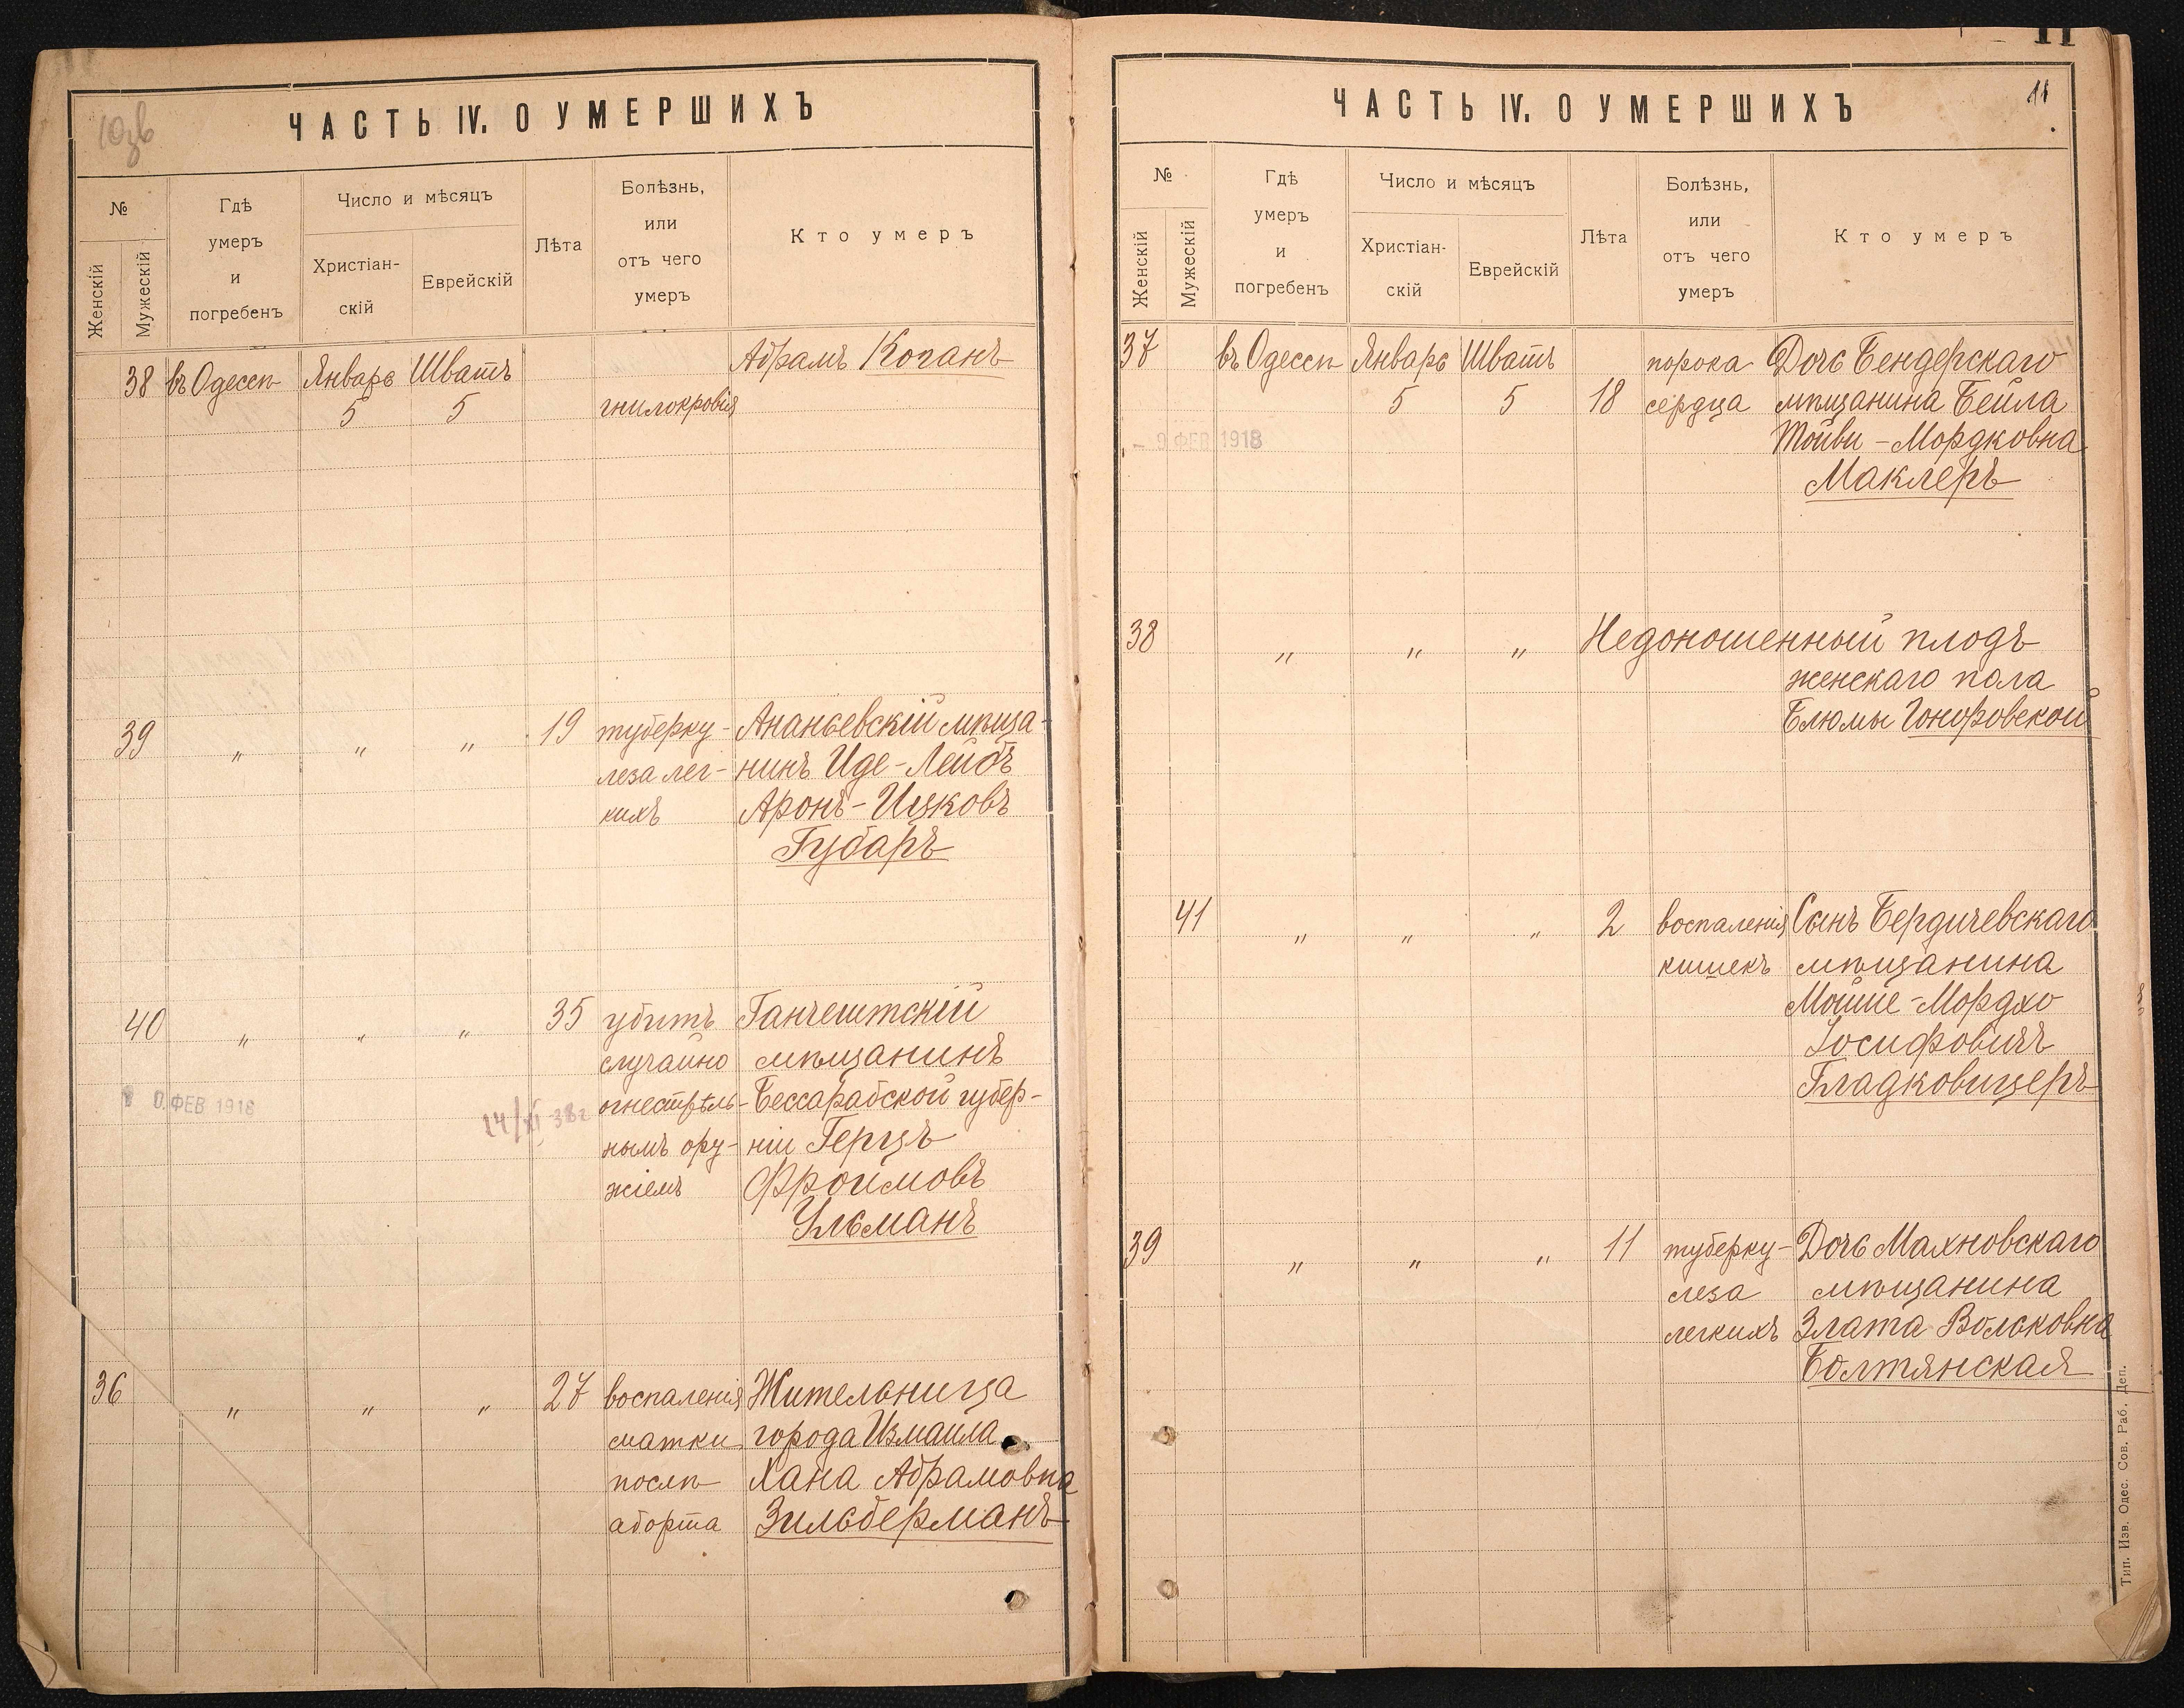 10зв
ЧАСТЬ IV. О УМЕРШИХЪ
№
Женскій
Мужескій
Гдѣ
умеръ
и
погребенъ
Число и мѣсяцъ
Христіан-
скій
Еврейскій
Лѣта
Болѣзнь,
или
отъ чего
умеръ
Кто умеръ
38 въ Одессѣ Январь Шватъ Абрамъ Коганъ
5 5 гнилокровія
39 " " " 19 туберку- Ананьевскій мѣща-
леза лег- нинъ Иде-Лейбъ
кихъ Аронъ-Ицковъ
Губаръ
40 " " " 35 убитъ Ганчештскій
случайно мѣщанинъ
огнестрѣль- Бессарабской губер-
нымъ ору- ніи Герцъ
жіемъ Фроимовъ
Ульманъ
ФЕВ 1918
14/XI 38г
36 " " " 27 воспаленія Жительница
матки города Измаила
послѣ Хана Абрамовна
аборта Зильберманъ
11
11
ЧАСТЬ IV. О УМЕРШИХЪ
№
Женскій
Мужескій
Гдѣ
умеръ
и
погребенъ
Число и мѣсяцъ
Христіан-
скій
Еврейскій
Лѣта
Болѣзнь,
или
отъ чего
умеръ
Кто умеръ
37 въ Одессѣ Январь Шватъ порока Дочь Бендерскаго
5 5 18 сердца мѣщанина Бейла
Тойви-Мордковна
Маклеръ
- 9 ФЕВ 1918
38 " " " Недоношенный плодъ
женскаго пола
Блюмы Гоноровской
41 " " " 2 воспаленія Сынъ Бердичевскаго
кишекъ мѣщанина
Мойше-Мордхо
Іосифовичъ
Гладковицеръ
39 " " " 11 туберку- Дочь Махновскаго
леза мѣщанина
легкихъ Злата Вольковна
Болтянская
Тип. Изв. Одес. Сов. Раб. Деп.